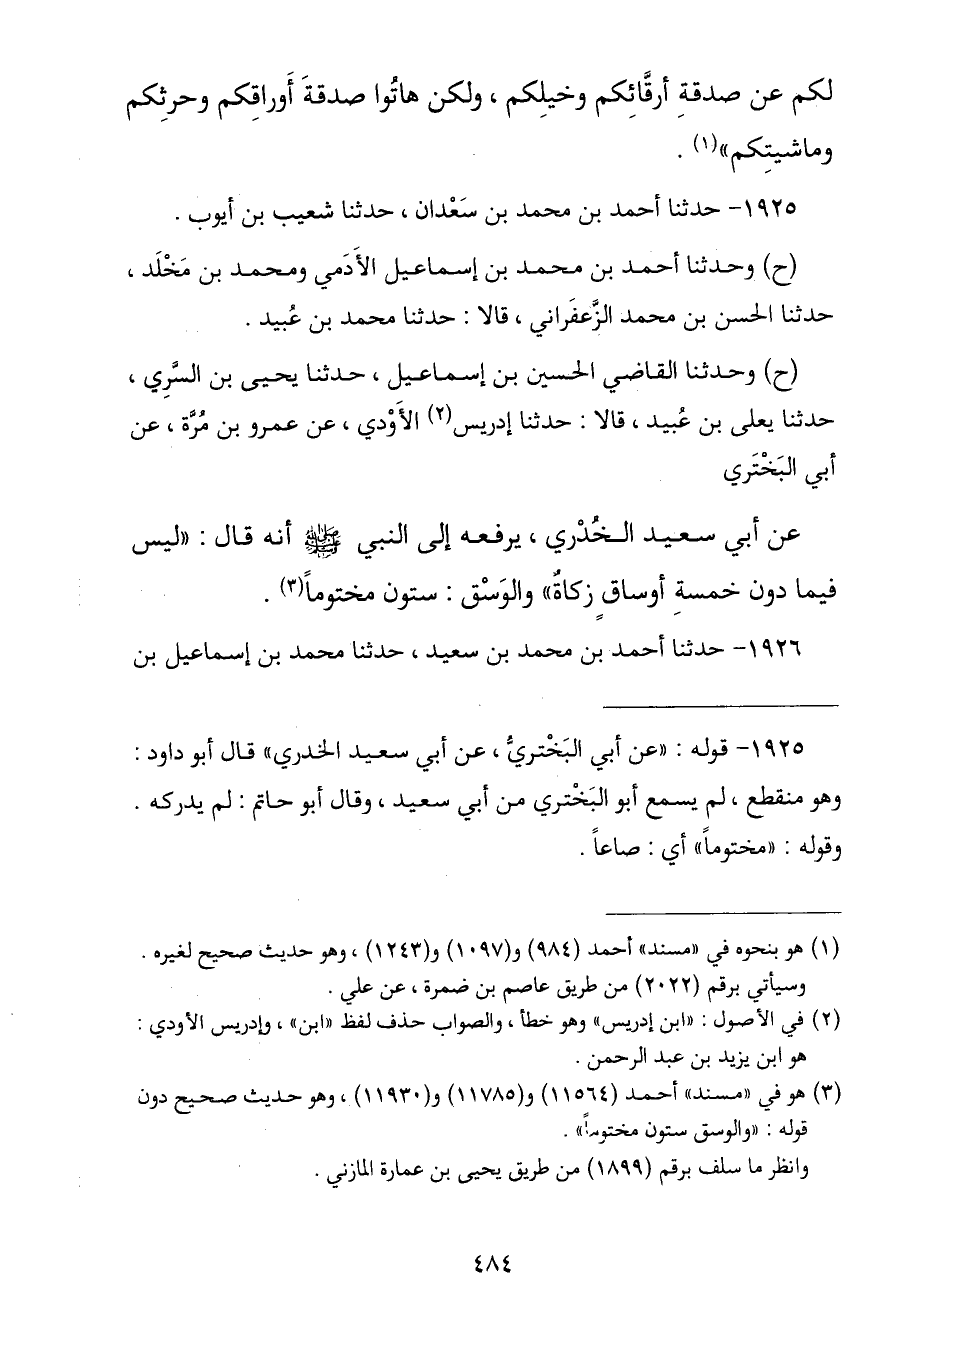 لكم عن صدقةِ أرقَّائِكم وخيلِكم ، ولكن هاتُوا صدقةَ أَوراقِكم وحرثِكم
وماشيتِكم»(١) .
١٩٢٥- حدثنا أحمد بن محمد بن سَعْدان ، حدثنا شعيب بن أيوب .
(ح) وحدثنا أحمد بن محمد بن إسماعيل الأَدَمي ومحمد بن مَخْلَد ،
حدثنا الحسن بن محمد الزَّعفَراني ، قالا : حدثنا محمد بن عُبيد .
(ح) وحدثنا القاضي الحسين بن إسماعيل ، حدثنا يحيى بن السَّرِي ،
حدثنا يعلى بن عُبيد ، قالا : حدثنا إدريس(٢) الأَوْدي ، عن عمرو بن مُرَّة ، عن
أبي البَخْتَري
عن أبي سعيد الخُدْري ، يرفعه إلى النبي ﷺ أنه قال : «ليس
فيما دون خمسةِ أوساقٍ زكاةٌ» والوَسْق : ستون مختوماً(٣) .
١٩٢٦- حدثنا أحمد بن محمد بن سعيد ، حدثنا محمد بن إسماعيل بن
١٩٢٥- قوله : «عن أبي البَخْتريُّ ، عن أبي سعيد الخدري» قال أبو داود :
وهو منقطع ، لم يسمع أبو البَخْتري من أبي سعيد ، وقال أبو حاتم : لم يدركه .
وقوله : «مختوماً» أي : صاعاً .
(١) هو بنحوه في «مسند» أحمد (٩٨٤) و(١٠٩٧) و(١٢٤٣) ، وهو حديث صحيح لغيره .
وسيأتي برقم (٢٠٢٢) من طريق عاصم بن ضمرة ، عن علي .
(٢) في الأصول : «ابن إدريس» وهو خطأ ، والصواب حذف لفظ «ابن» ، وإدريس الأودي :
هو ابن يزيد بن عبد الرحمن .
(٣) هو في «مسند» أحمد (١١٥٦٤) و(١١٧٨٥) و(١١٩٣٠) ، وهو حديث صحيح دون
قوله : «والوسق ستون مختوماً» .
وانظر ما سلف برقم (١٨٩٩) من طريق يحيى بن عمارة المازني .
٤٨٤